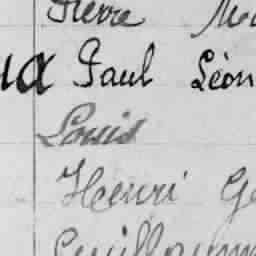 Pierre
Paul Léon
Louis
Henri
Guillaume